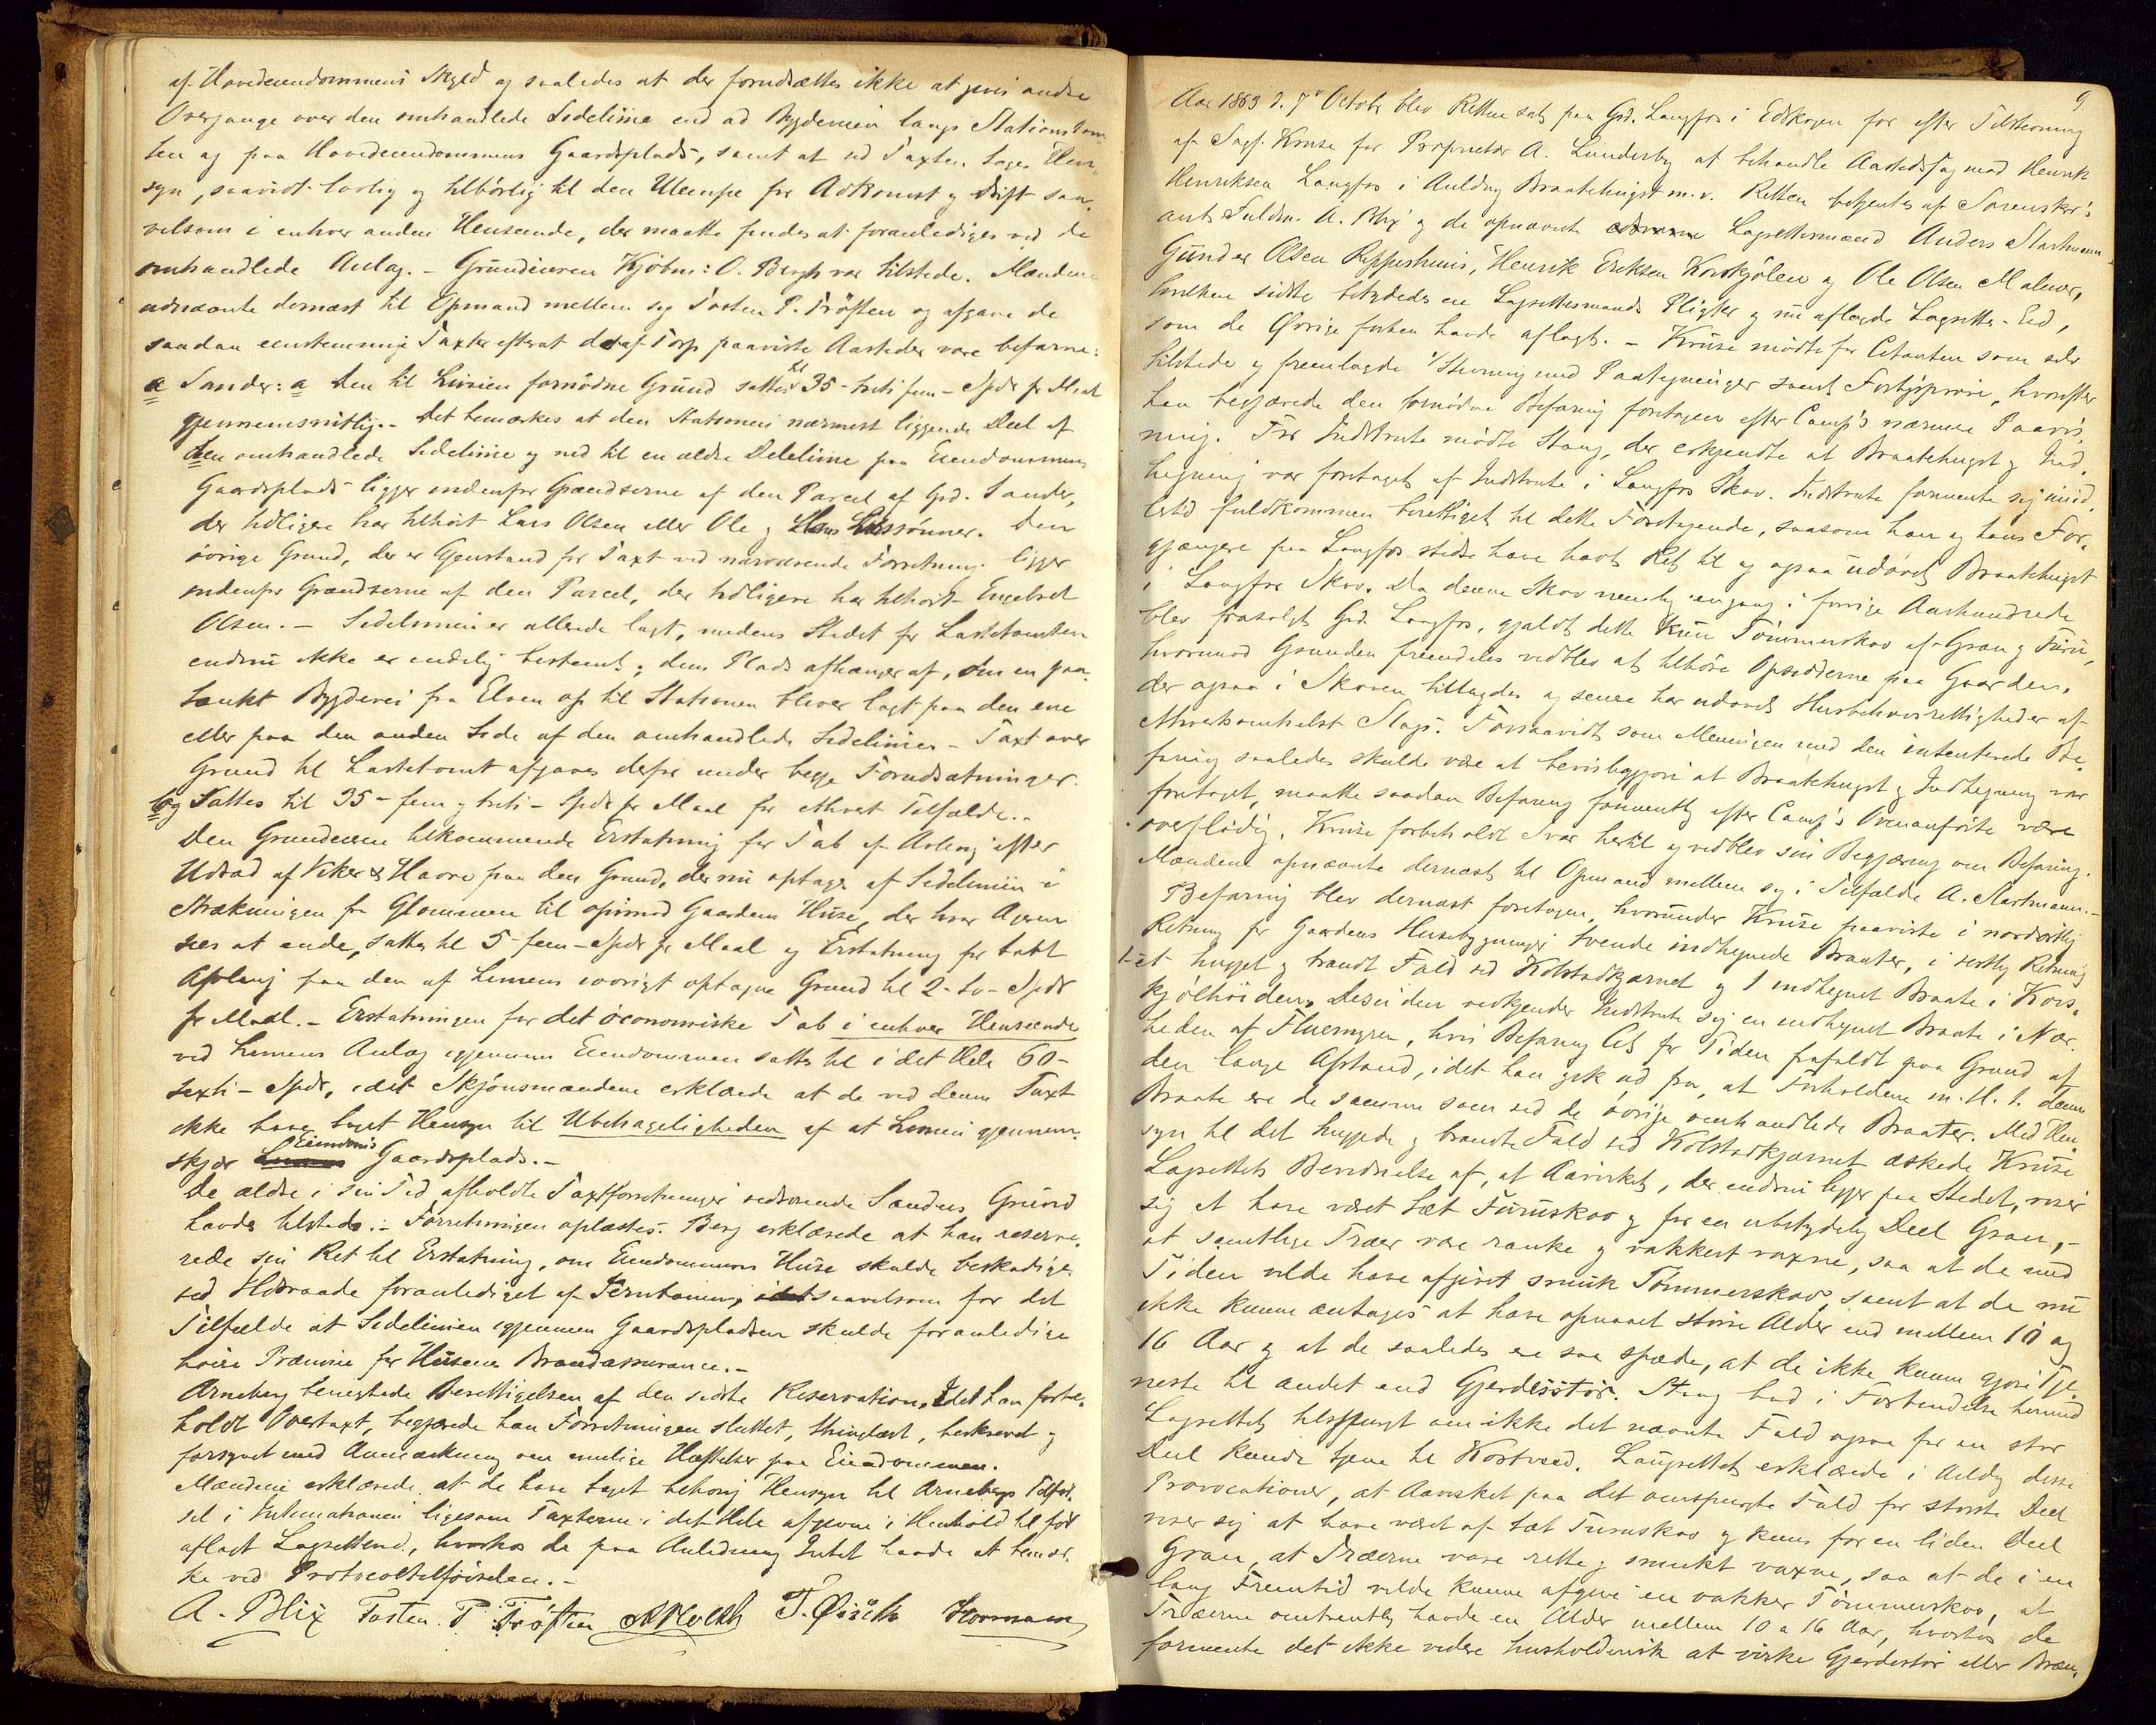 af Hovedeiendommens Skyld og saaledes at der forudsættes ikke at gives andre
Overgange over den omhandlede Sidelinie end ad Bygdeveien langs Stationstom-
ten og paa Hovedeiendommens Gaardsplads, samt at ved Taxten tages Hen-
syn, saavidt lovlig og tilbörlig til den Ulempe for Adkomst og Drift saa-
velsom i enhver anden Henseende, der maatte findes at foranlediges ved de
omhandlede Anlæg. - Grundeieren Kjöbm: O. Bergh var tilstede. Mændene
udnævnte dernæst til Opmand mellem sig Tosten P. Tröften og afgave de
saadan eenstemmige Taxter efterat de af Torp paaviste Aasteder vare befarne:
a Sander: a Den til Linien fornödne Grund sattes til 35 - treti fem - Spdr pr Maal
gjennemsnitlig. - Det bemærkes at den Stationen nærmest liggende Deel af
den omhandlede Sidelinie og ned til en ældre Delelinie paa Eiendommens
Gaardsplads ligger indenfor Grændserne af den Parcel af Grd. Sander,
der tidligere har tilhört Lars Olsen eller Ole og Larssönner. Den
övrige Grund, der er Gjenstand for Taxt ved nærværende Forretning ligger
indenfor Grændserne af den Parcel, der tidligere har tilhört Engebret
Olsen. - Sidelinien er allerede lagt, medens Stedet for Lastetomten
endnu ikke er endelig bestemt; dens Plads afhænger af, om en paa-
tænkt Bygdevei fra Elven op til Stationen bliver lagt paa den ene
eller paa den anden Side af den omhandlede Sidelinie. - Taxt over
Grund til Lastetomt afgaves derfor under begge Forudsætninger
og sattes til 35 - fem og treti - Spdr pr Maal for ethvert Tilfælde. -
Den Grundeieren tilkommende Erstatning for Tab af Avling efter
Udsæd af Viker & Havre paa den Grund, der nu optages af Sidelinien i
Strækningen fra Glommen til opimod Gaardens Huse, der hvor Ageren
sees at ende, sattes til 5 - fem - Spdr pr Maal og Erstatning for tabt
Avling paa den af Liniens iövrigt optagne Grund til 2 - to - Spdr
pr Maal. - Erstatningen for det öconomiske Tab i enhver Henseende
ved Liniens Anlæg igjennem Eiendommen sattes til i det Hele 60 -
sexti - Spdr, idet Skjönsmændene erklærede at de ved denne Taxt
ikke have taget Hensyn til Ubehageligheden af at Linien gjennem-
skjær Eiendoms Gaardsplads. -
De ældre i sin Tid afholdte Taxtforretninger vedrörende Sanders Grund
havdes tilstede. - Forretningen oplæstes. Berg erklærede at han reserve-
rede sin Ret til Erstatning, om Eiendommens Huse skulde beskadiges
ved Ildsvaade foranlediget af Jernbanen, saavelsom for det
Tilfælde at Sidelinien igjennem Gaardspladsen skulde foranledige
höiere Præmie for Husenes Brandassurance. -
Arneberg benegtede Berettigelsen af den sidste Reservation. Idet han forbe-
holdt Overtaxt, begjærede han Forretningen sluttet, thinglæst, beskrevet og
forsynet med Anmærkning om mulige Hæftelser paa Eiendommen.
Mændene erklærede at de have taget behörig Hensyn til Arnebergs Tilför-
sel i Intimationen ligesom Taxterne i det Hele afgivne i Henhold til för
aflagt Lagretteed, hvorhos de paa Anledning Intet havde at bemær-
ke ved Protocoltilförselen. -
A. Blix Tosten. P. Tröften T.
9.
Aar 1863 d. 7de Octobr blev Retten sat paa Grd. Langfos i Edskogen for efter Tilstevning
af Sagf. Kruse for Proprietær A. Lunderby at behandle Aastedssag mod Henrik
Henriksen Langfos i Anldng Braatehugst m.v. Retten betjentes af Sorenskr's
const. Fuldm. A. Blix og de opnævnte Lagrettesmænd Anders
Gunder Olsen Reppeshuus, Henrik Eriksen Korskjölen og Ole Olsen
hvilken sidste betydedes en Lagrettesmands Pligter og nu aflagde Lagrette-Eed,
som de Övrige forhen havde aflagt. - Kruse mödte for Citanten som selv
tilstede og fremlagde 1 Stevning med Paategninger samt Forligspröve, hvorefter
han begjærede den fornödne Befaring foretagen efter Comp's nærmere Paavis-
ning. For Indstevnte mödte Stang, der erkjendte at Braatehugst og Ind-
hegning var foretaget af Indstevnte i Langfos Skov. Indstevnte formente sig imid-
lertid fuldkommen berettiget til dette Foretagende, saasom han og hans For-
gjængere paa Langfos stedse have havt Ret til og ogsaa udövet Braatehugst
i Langfos Skov. Da denne Skov nemlig engang i forrige Aarhundrede
blev frasolgt Grd. Langfos, gjaldt dette kun Tömmerskov af Gran og Furu,
hvorimod Grunden fremdeles vedblev at tilhöre Opsidderne paa Gaarden,
der ogsaa i Skoven tillagdes og senere har udövet Husbehovsrettigheder af
ethvertsomhelst Slags. Forsaavidt som Meningen med den intenterede Be-
faring saaledes skulde være at bevisliggjöre at Braatehugst og Indhegning var
foretaget, maatte saadan Befaring formentlig efter Comp's Ovenanförte være
overflödig. Kruse forbeholdt Svar hertil og vedblev sin Begjæring om Befaring.
Mændene opnævnte dernæst til Opmand mellem sig i Tilfælde A.
Befaring blev dernæst foretagen, hvorunder Kruse paaviste i nordostlig
Retning fra Gaardens Husebygninger tvende indhegnede Braater, i vestlig Retning
1 - et hugget og brændt Fald ved Kolstadkjærnet og 1 indhegnet Braate i Kors-
kjölhöiden. Desuden vedkjender Indstevnte sig en indhegnet Braate i Nær-
heden af Fluemyren, hvis Befaring Cit. for Tiden frafaldt paa Grund af
den lange Afstand, idet han gik ud fra, at Forholdene m. H. t. denne
Braate ere de samme som ved de övrige omhandlede Braater. Med Hen-
syn til det huggede og brændte Fald ved Kolstadkjærnet æskede Kruse
Lagrettets Bevidnelse af, at Aavirket, der endnu ligger paa Stedet, viser
sig at have været tæt Furuskov og for en ubetydelig Deel Gran, -
at samtlige Træer vare ranke og vakkert voxne, saa at de med
Tiden vilde have afgivet smuk Tömmerskov, samt at de nu
ikke kunne antages at have opnaaet större Alder end mellem 10 og
16 Aar og at de saaledes ere saa spæde, at de ikke kunne gjöre Tje-
neste til andet end Gjerdesstör. Stang bad i Forbindelse hermed
Lagrettet tilspurgt om ikke det nævnte Fald ogsaa for en stor
Deel kunde tjene til Kortved. Laugrettet erklærede i Anldng disse
Provocationer, at Aavirket paa det omspurgte Fald for störste Deel
viser sig at have været af tæt Furuskov og kuns for en liden Deel
Gran, at Træerne vare rette og smukt voxne, saa at de i en
lang Fremtid vilde kunne afgive en vakker Tömmerskov, at
Træerne omtrentlig havde en Alder mellem 10 a 16 Aar, hvorhos de
formente det ikke videre husholderisk at virke Gjerdestör eller Bræn-